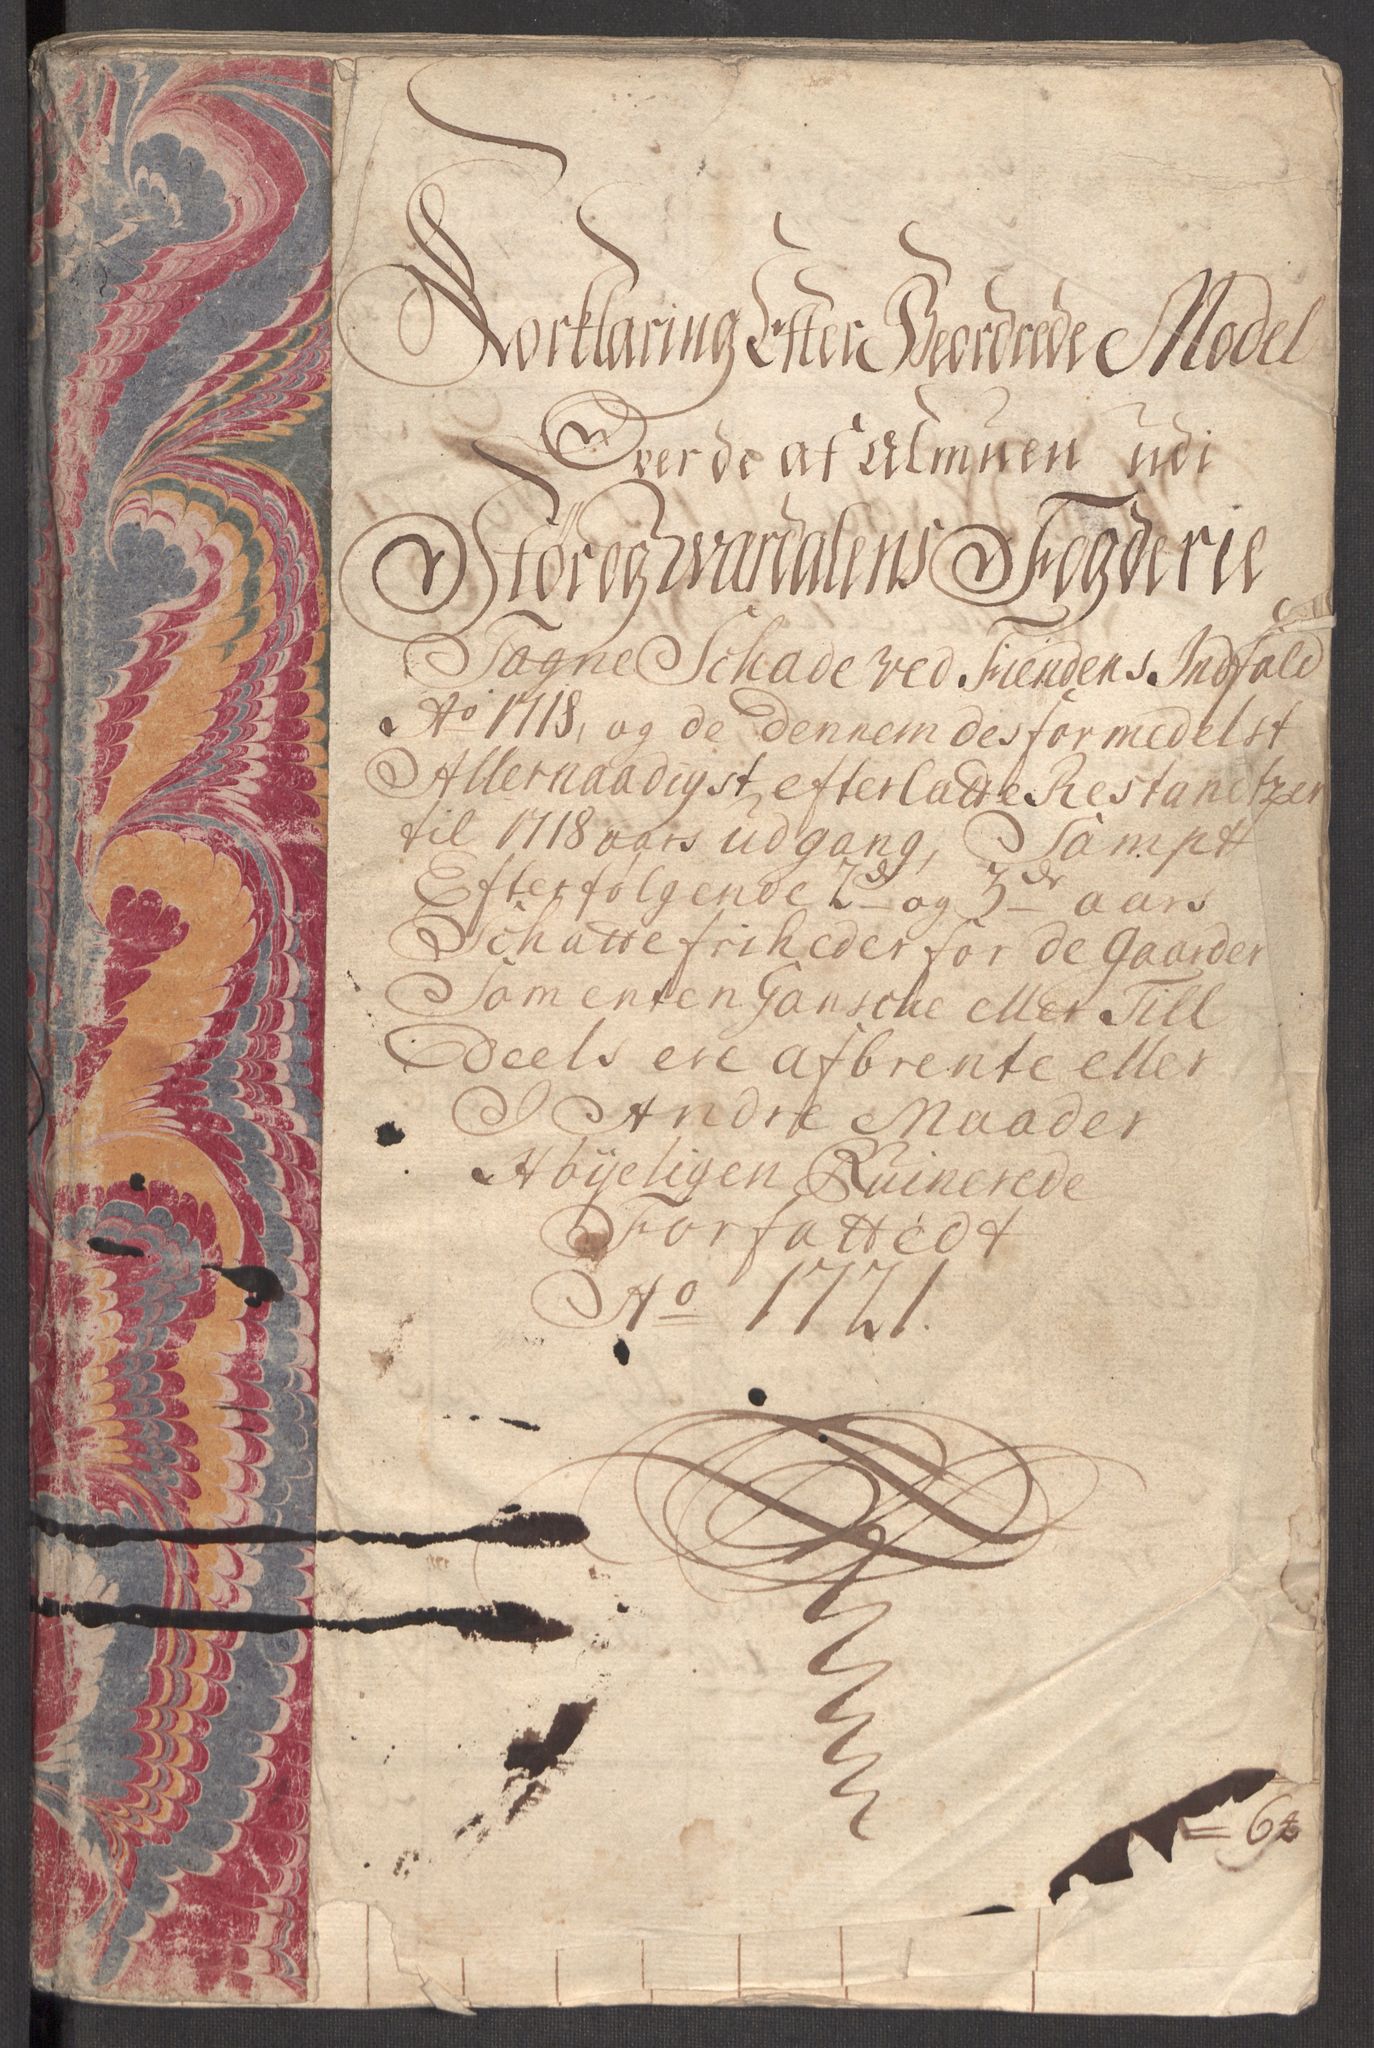 Forklaring Efter Beordrede Model
Over de af Almuen udi
Størog Wærdalens Fogderie
Tagne Schade ved Fiendens Indfald
Ao 1718, og de dennem des formedelst
Allernaadigst efterladte Restantzer
til 1718 aars udgang, Sampt
Efterfølgende 2de og 3de aars
Schatte friheder for de Gaarder
Som enten Gansche eller Till
Deels ere afbrente eller
I Andre Maader
Høyeligen Ruinerede
Forfattedt
Ao 1721.
= 6